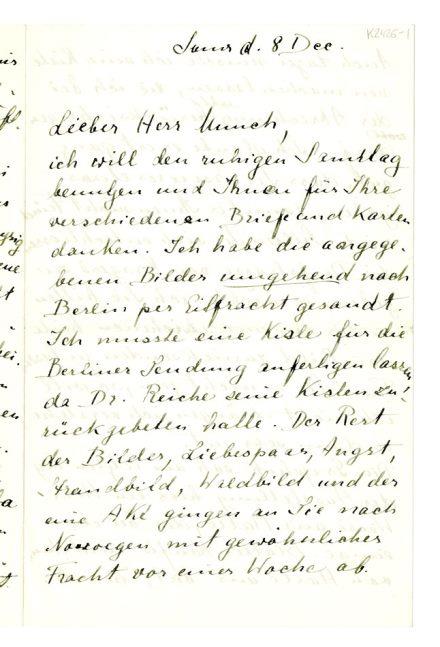 K2426-1
Sams d. 8 Dec.
Lieber Herr Munch,
ich will den ruhigen Samstag
benutzen und Ihnen für Ihre
verschiedenen Briefe und Karten
danken. Ich habe die angege-
benen Bilder umgehend nach
Berlin per Eilfracht gesandt.
Ich musste eine Kiste für die
Berliner Sendung anfertigen lassen
da Dr. Reiche seine Kisten zu!
rückgebeten hatte. Der Rest
der Bilder, Liebespaar, Angst,
Strandbild, Waldbild und der
eine Akt gingen an Sie nach
Norwegen mit gewöhnlicher
Fracht vor einer Woche ab.